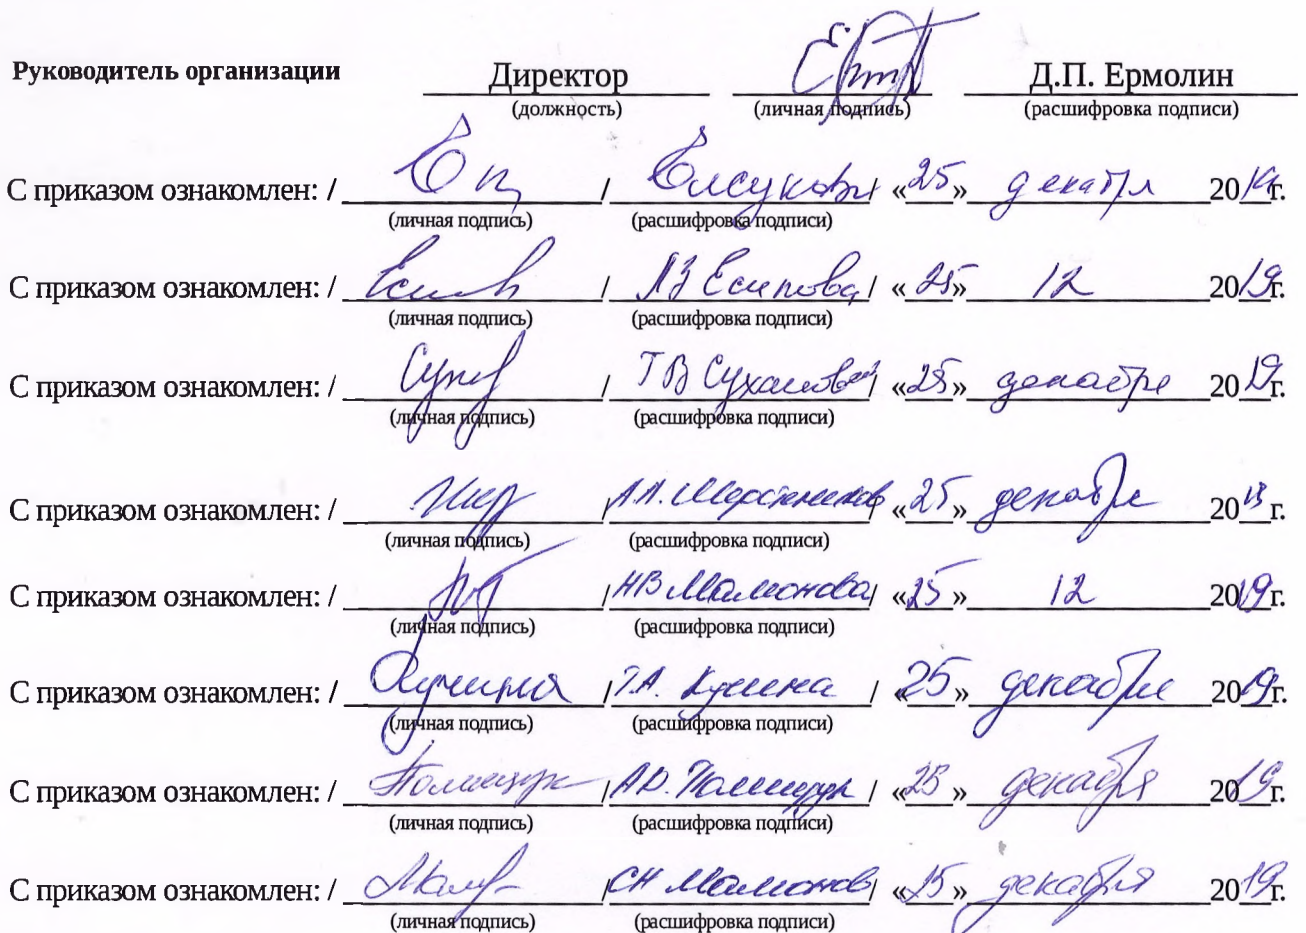 Руководитель организации Директор Д.П. Ермолин
(должность) (личная подпись) (расшифровка подписи)
С приказом ознакомлен: / / / «25» декабря 2019г.
(личная подпись) (расшифровка подписи)
С приказом ознакомлен: / / ЛЗ Есипова / «25» 12 2019г.
(личная подпись) (расшифровка подписи)
С приказом ознакомлен: / / ТВ Суханова / «25» декабря 2019г.
(личная подпись) (расшифровка подписи)
С приказом ознакомлен: / / / «25» декабря 20 г.
(личная подпись) (расшифровка подписи)
С приказом ознакомлен: / / НВ Мамонова / «25» 12 2019г.
(личная подпись) (расшифровка подписи)
С приказом ознакомлен: / / / «25» декабря 2019г.
(личная подпись) (расшифровка подписи)
С приказом ознакомлен: / Полищук / Полищук / « » декабря 2019г.
(личная подпись) (расшифровка подписи)
С приказом ознакомлен: / / СН Мамонов / «25» декабря 2019г.
(личная подпись) (расшифровка подписи)